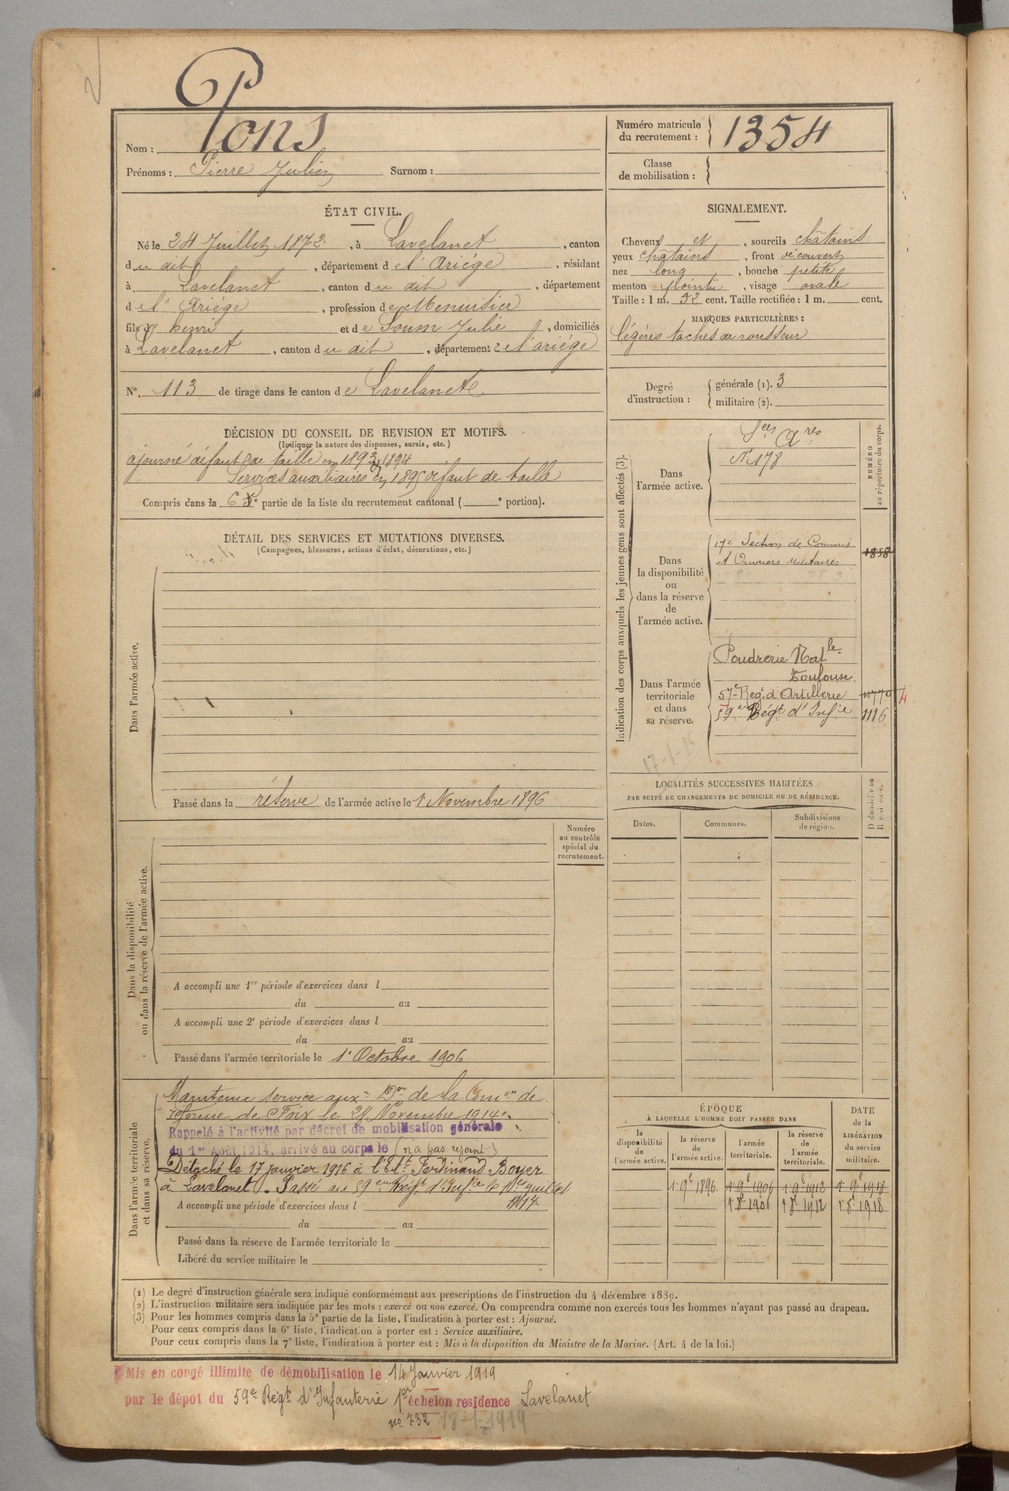 Nom : Pons
Prénoms : Pierre Julien Surnom :
Numéro matricule du recrutement : 1354
Classe de mobilisation :
ÉTAT CIVIL.
Né le 24 Juillet 1872, à Lavelanet, canton
du dit, département de l'Ariége, résidant
à Lavelanet, canton du dit, département
de l'Ariége, profession de Menuisier
fils d' henri et de Soum Julie, domiciliés
à Lavelanet, canton du dit, département de l'ariége
N°. 113 de tirage dans le canton de Lavelanet
SIGNALEMENT.
Cheveux et, sourcils châtains
yeux châtains, front découvert
nez long, bouche petite
menton pointu, visage ovale
Taille : 1 m. 52 cent. Taille rectifiée : 1 m. cent.
MARQUES PARTICULIÈRES :
légéres taches de rousseur
Degré d'instruction :
générale (1). 3
militaire (2).
DÉCISION DU CONSEIL DE REVISION ET MOTIFS.
(Indiquer la nature des dispenses, sursis, etc.)
ajourné défaut de taille en 1893, 1894
Services auxiliaires en 1895 défaut de taille
Compris dans la 6e partie de la liste du recrutement cantonal ( e portion).
DÉTAIL DES SERVICES ET MUTATIONS DIVERSES.
(Campagnes, blessures, actions d'éclat, décorations, etc.)
Dans l'armée active.
Passé dans la réserve de l'armée active le 1 Novembre 1896
Indication des corps auxquels les jeunes gens sont affectés (3).
NUMÉRO au répertoire du corps.
Dans l'armée active.
Sces Xres
N° 178
Dans la disponibilité ou dans la réserve de l'armée active.
17e Section de Commis
et Ouvriers militaires 1858
Dans l'armée territoriale et dans sa réserve.
Poudrerie Nale
Toulouse.
57e Regt d'Artillerie
59e Régt d'Infie 1116
LOCALITÉS SUCCESSIVES HABITÉES
PAR SUITE DE CHANGEMENTS DE DOMICILE OU DE RÉSIDENCE.
Dates. Communes. Subdivisions de région. D domicile ou R résidence.
Numéro au contrôle spécial du recrutement.
Dans la disponibilité ou dans la réserve de l'armée active.
A accompli une 1re période d'exercices dans l
du au
A accompli une 2e période d'exercices dans l
du au
Passé dans l'armée territoriale le 1r Octobre 1906
Dans l'armée territoriale et dans sa réserve.
Maintenu service auxre Don de la Comon de
réforme de Foix le 21 Novembre 1914.
Rappelé à l'activité par décret de mobilisation générale
du 1er Août 1914, arrivé au corps le (n'a pas rejoint)
Détaché le 17 janvier 1916 à l'Ets Ferdinand Boyer
à Lavelanet. Passé au 59e Regt d'Infie le 1er juillet
1917
A accompli une période d'exercices dans l
du au
Passé dans la réserve de l'armée territoriale le
Libéré du service militaire le
ÉPOQUE
À LAQUELLE L'HOMME DOIT PASSER DANS
DATE DE LA LIBÉRATION du service militaire.
la disponibilité de l'armée active. la réserve de l'armée active. l'armée territoriale. la réserve de l'armée territoriale.
1 9e 1896 1 9e 1906 1 9e 1912 1 9e 1918
1 8e 1906 1 8e 1912 1 8e 1918
(1) Le degré d'instruction générale sera indiqué conformément aux prescriptions de l'instruction du 4 décembre 1889.
(2) L'instruction militaire sera indiquée par les mots : exercé ou non exercé. On comprendra comme non exercés tous les hommes n'ayant pas passé au drapeau.
(3) Pour les hommes compris dans la 5e partie de la liste, l'indication à porter est : Ajourné.
Pour ceux compris dans la 6e liste, l'indication à porter est : Service auxiliaire.
Pour ceux compris dans la 7e liste, l'indication à porter est : Mis à la disposition du Ministre de la Marine. (Art. 4 de la loi.)
Mis en congé illimité de démobilisation le 14 Janvier 1919
par le dépot du 59e Régt d'Infanterie 1er échelon residence Lavelanet
n° 732 18-1-1919